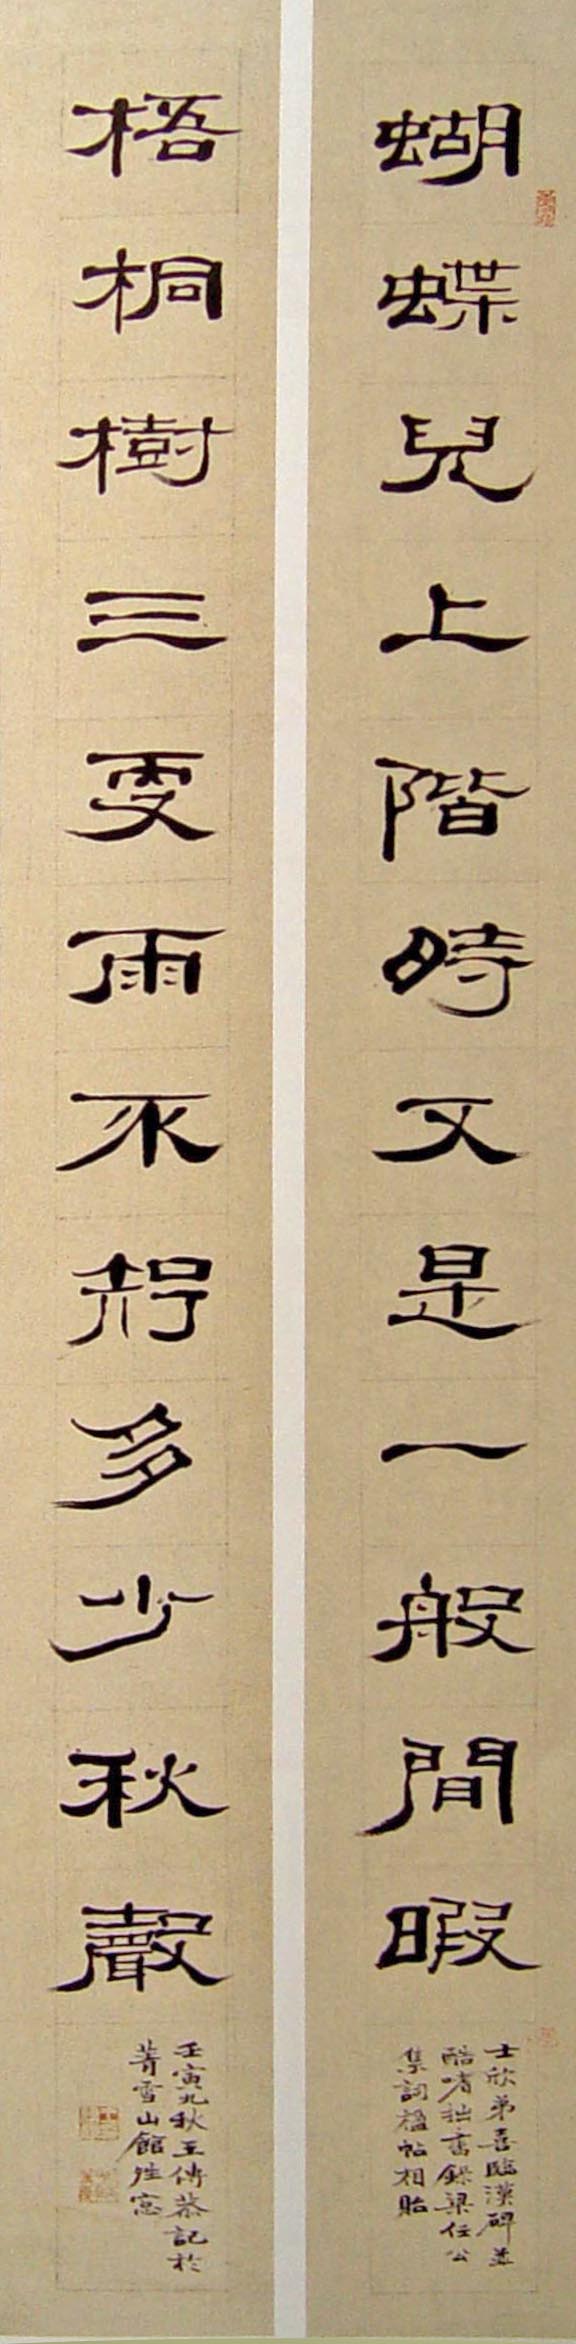 蝴蝶兒上階時又是一般閒暇
士欣弟喜臨漢碑並
酷嗜拙書錄梁任公
集詞楹帖相貽
梧桐樹三更雨不知多少秋聲
壬寅九秋王傳恭記於
菁雪山館晴窓